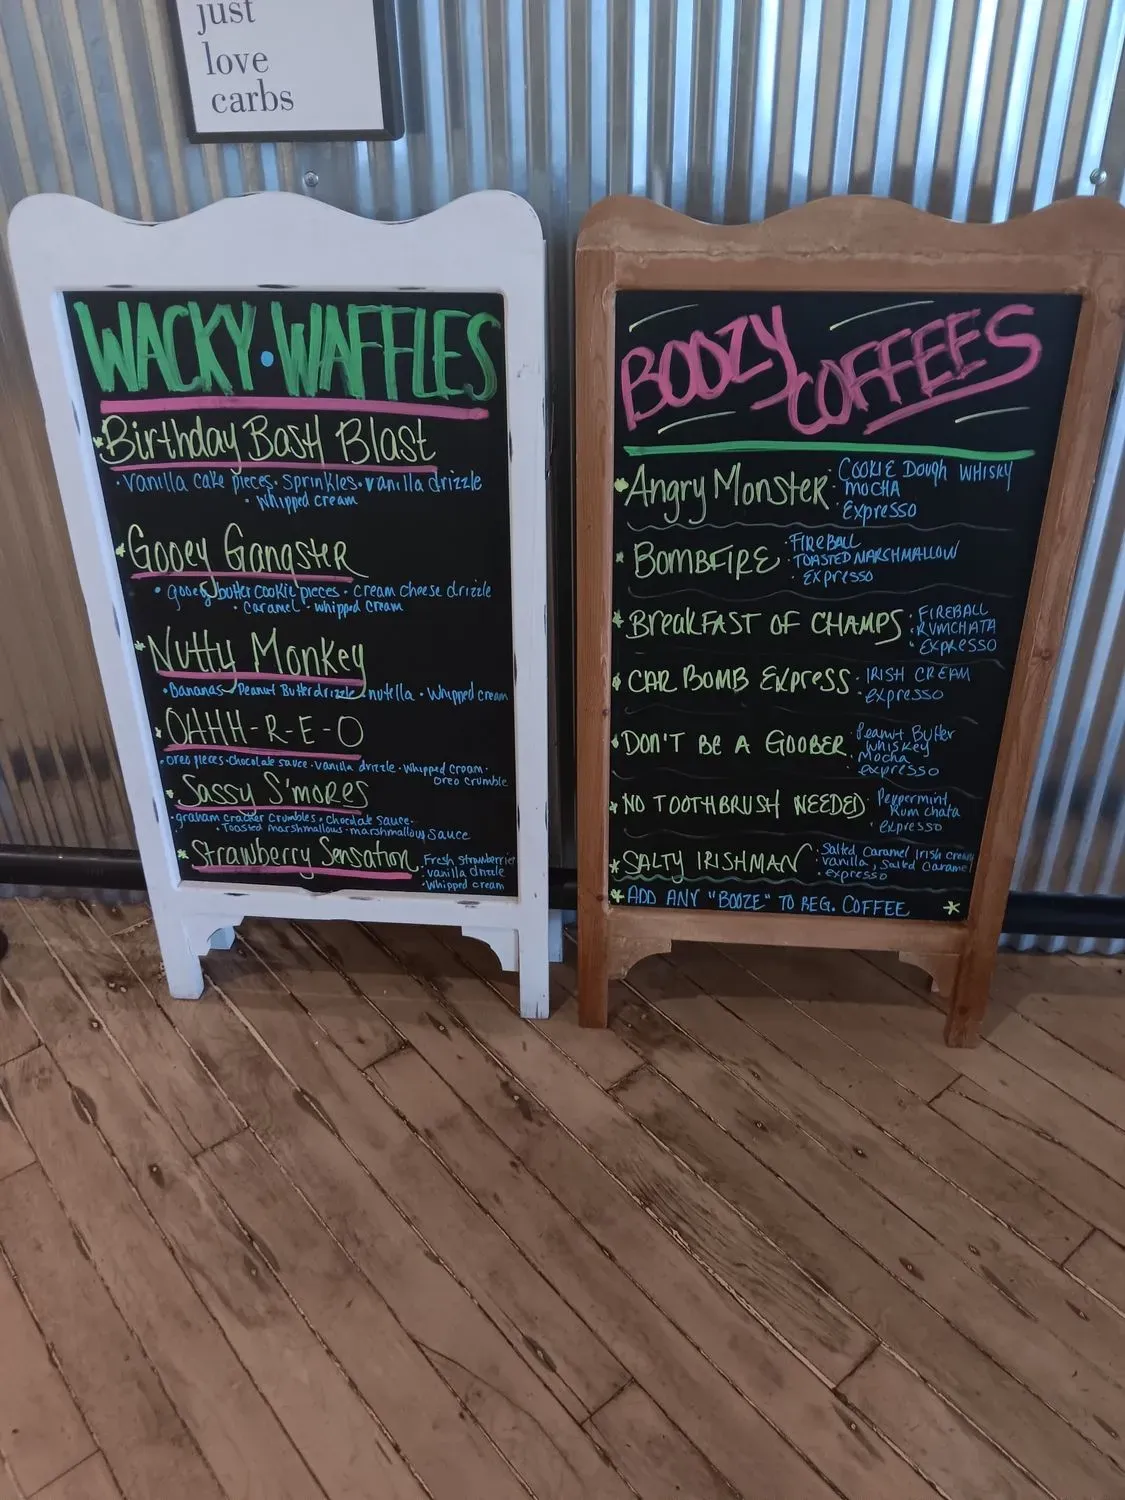 just
love
carbs
WACKY · WAFFLES
*Birthday Bash Blast
· Vanilla cake pieces · sprinkles · vanilla drizzle
· Whipped cream
*Gooey Gangster
· gooey butter cookie pieces · cream cheese drizzle
· caramel · whipped cream
*Nutty Monkey
· Bananas · Peanut Butter drizzle · nutella · Whipped cream
*OAHH-R-E-O
· oreo pieces · chocolate sauce · vanilla drizzle · Whipped cream ·
oreo crumble
*Sassy S'mores
· graham cracker crumbles · chocolate sauce ·
· Toasted marshmallows · marshmallow sauce
*Strawberry Sensation
· Fresh strawberries
· vanilla drizzle
· Whipped cream
BOOZY
COFFEES
*Angry Monster
· COOKIE Dough WHISKY
· MOCHA
· Expresso
*BOMBFIRE
· FIREBALL
· TOASTED MARSHMALLOW
· Expresso
*BreakFAST OF CHAMPS
· FIREBALL
· RUMCHATA
· Expresso
*CAR BOMB EXPRESS
· IRISH CREAM
· expresso
*DON'T BE A GOOBER
· Peanut Butter
Whiskey
· Mocha
· expresso
*NO TOOTHBRUSH NEEDED
· Peppermint
· Rum chata
· expresso
*SALTY IRISHMAN
· Salted Caramel Irish cream
· vanilla, salted caramel
· expresso
*ADD ANY "BOOZE" TO REG. COFFEE *